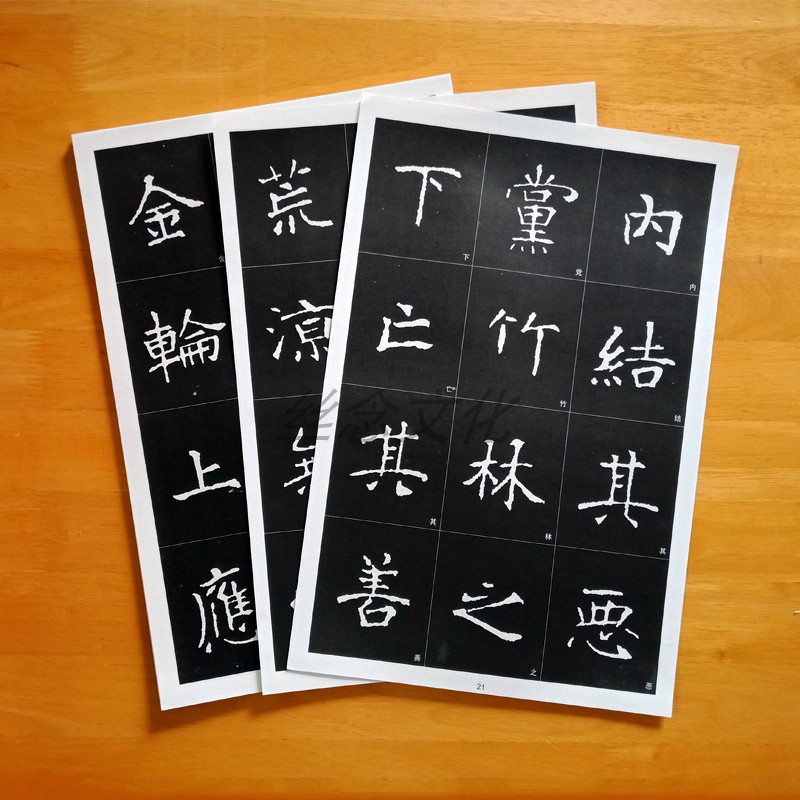 内結其悪
内结其恶
黨竹林之
党竹林之
下亡其善
下亡其善
21
荒涼
金輪上應
丝念文化